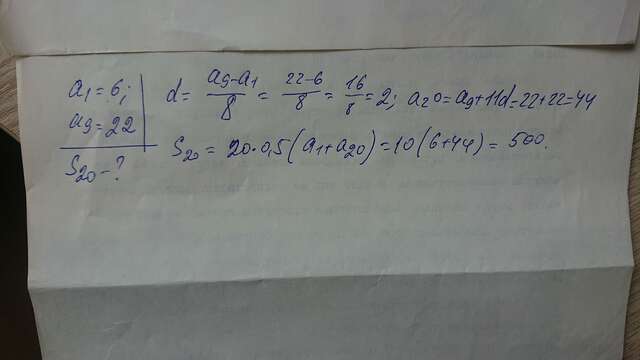 a₁ = 6;
a₉ = 22
S₂₀ - ?
d = (a₉-a₁)/8 = (22-6)/8 = 16/8 = 2; a₂₀ = a₉+11d = 22+22 = 44
S₂₀ = 20·0,5(a₁+a₂₀) = 10(6+44) = 500.